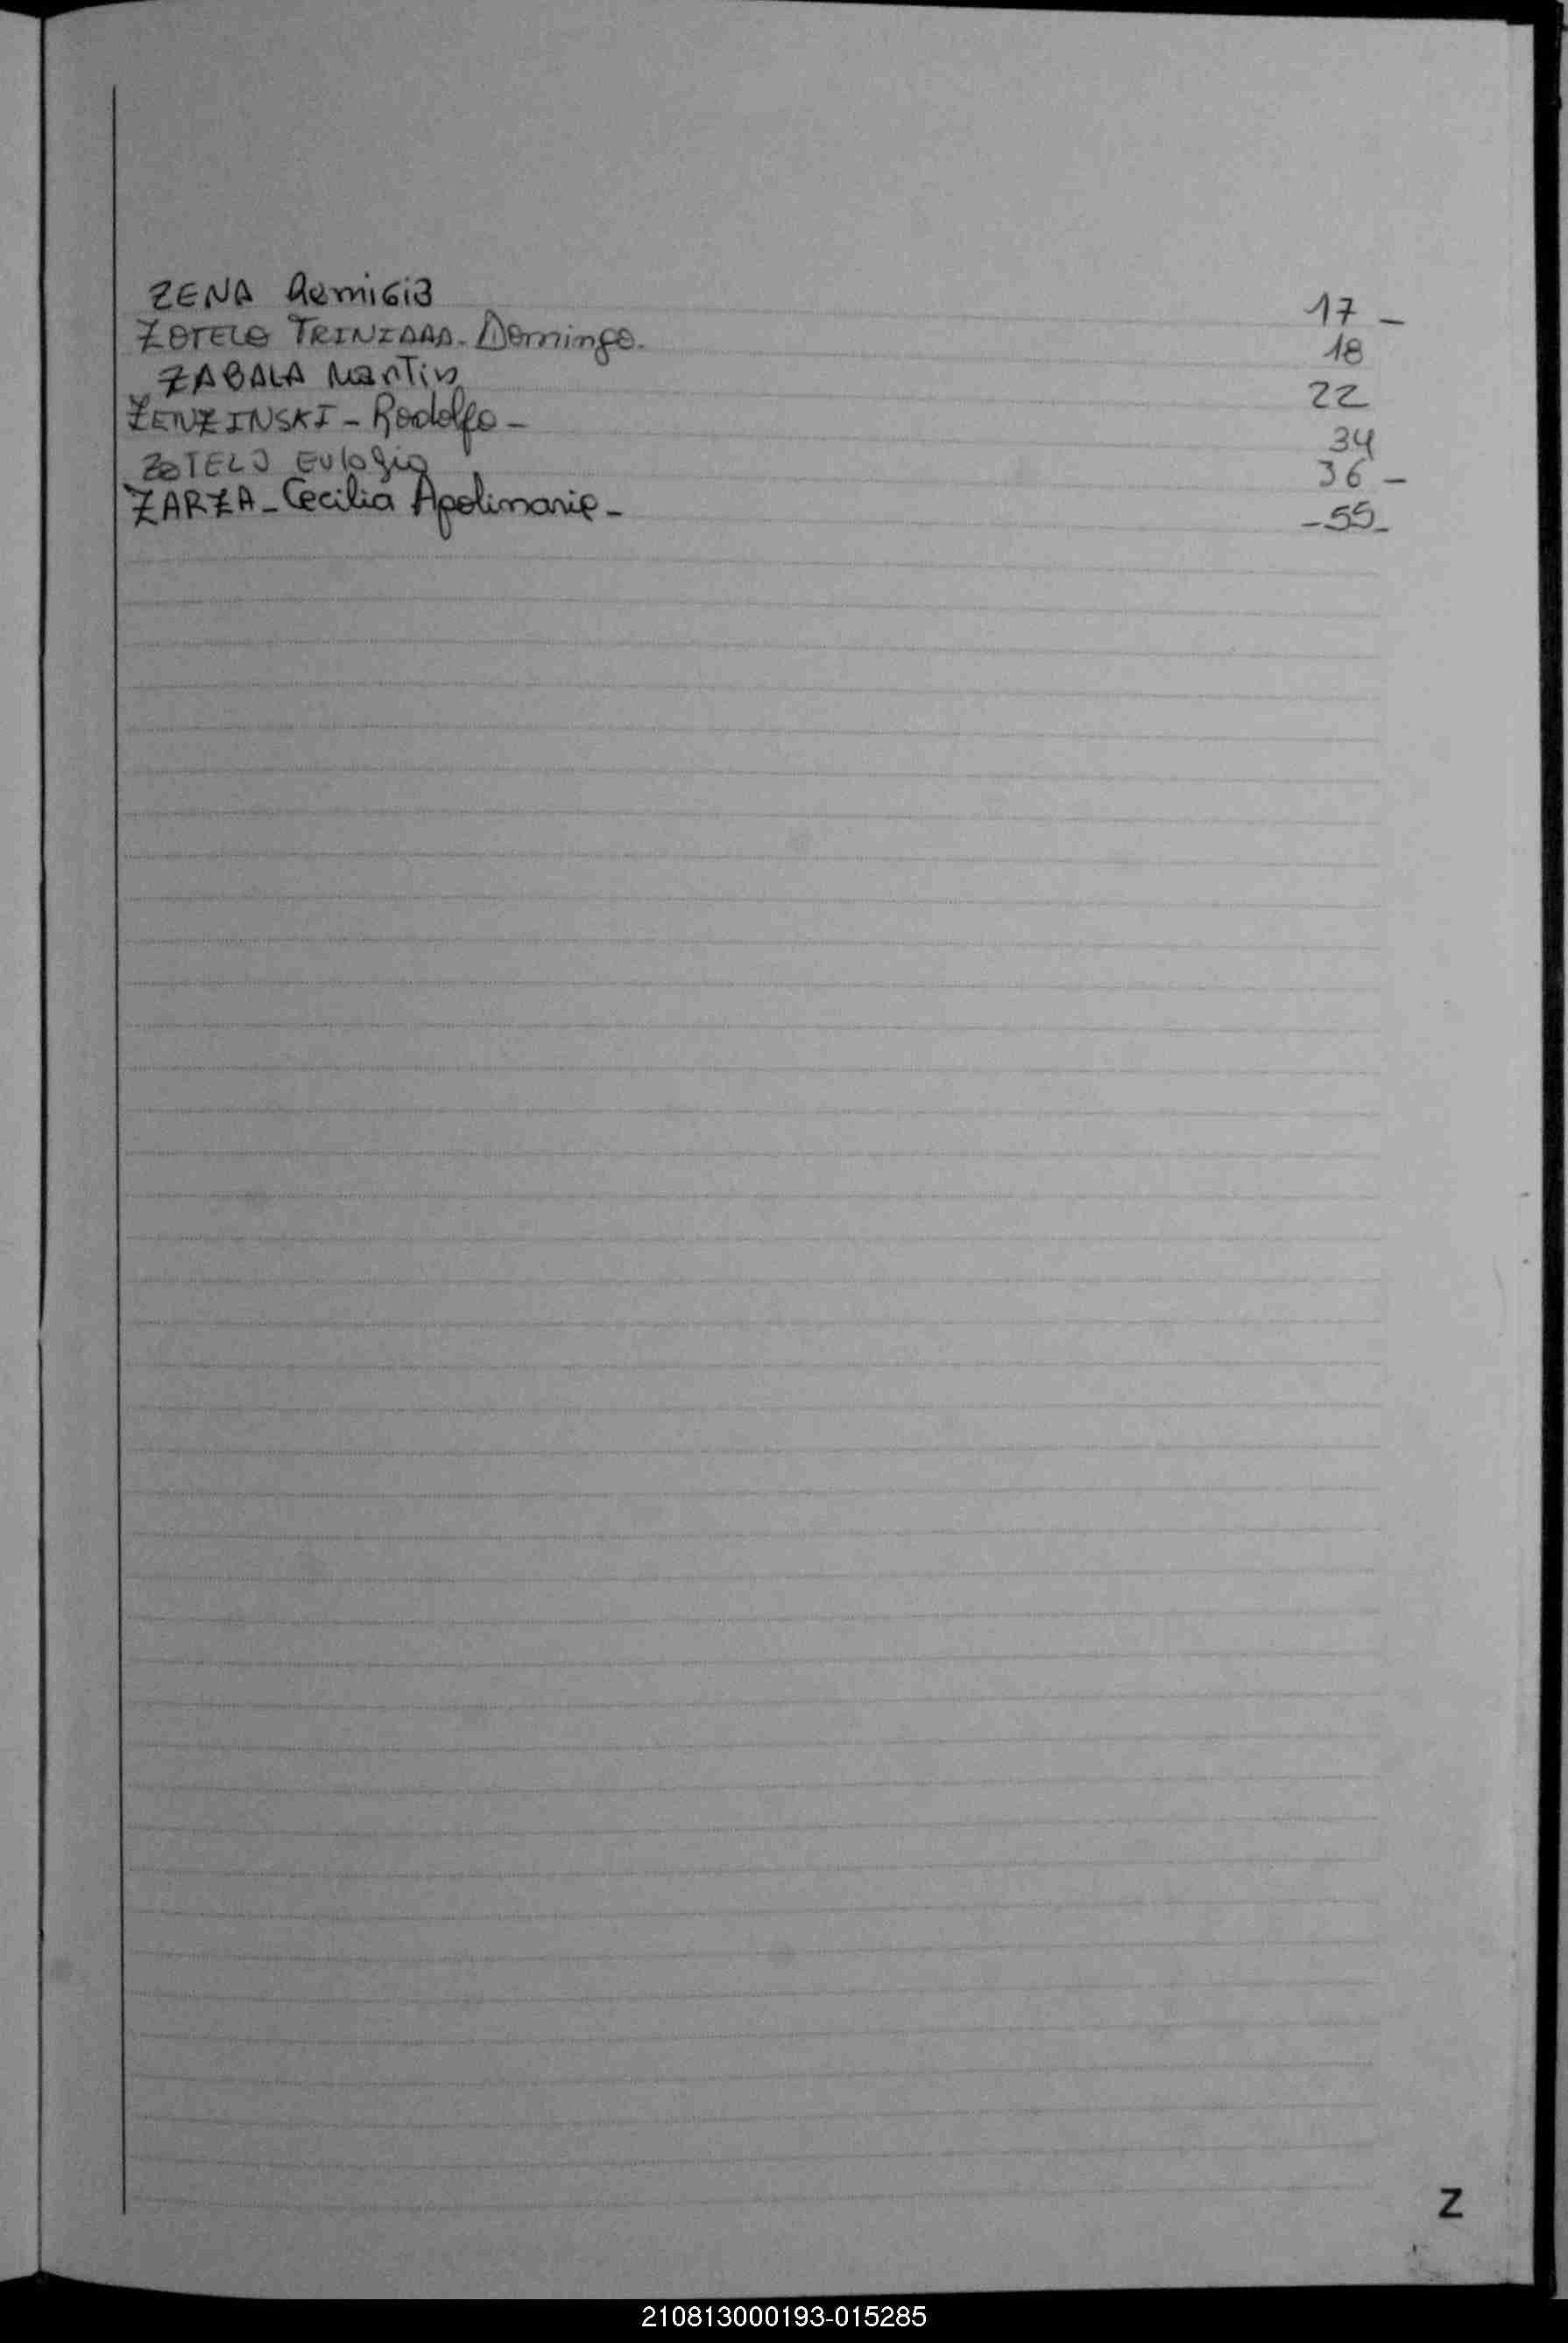 ZENA Remigio 17 -
ZOTELO TRINIDAD - Domingo. 18
ZABALA Martin 22
ZENZINSKI - Rodolfo - 34
ZOTELO Eulogio 36 -
ZARZA - Cecilia Apolinaria - - 55 -
Z
210813000193-015285